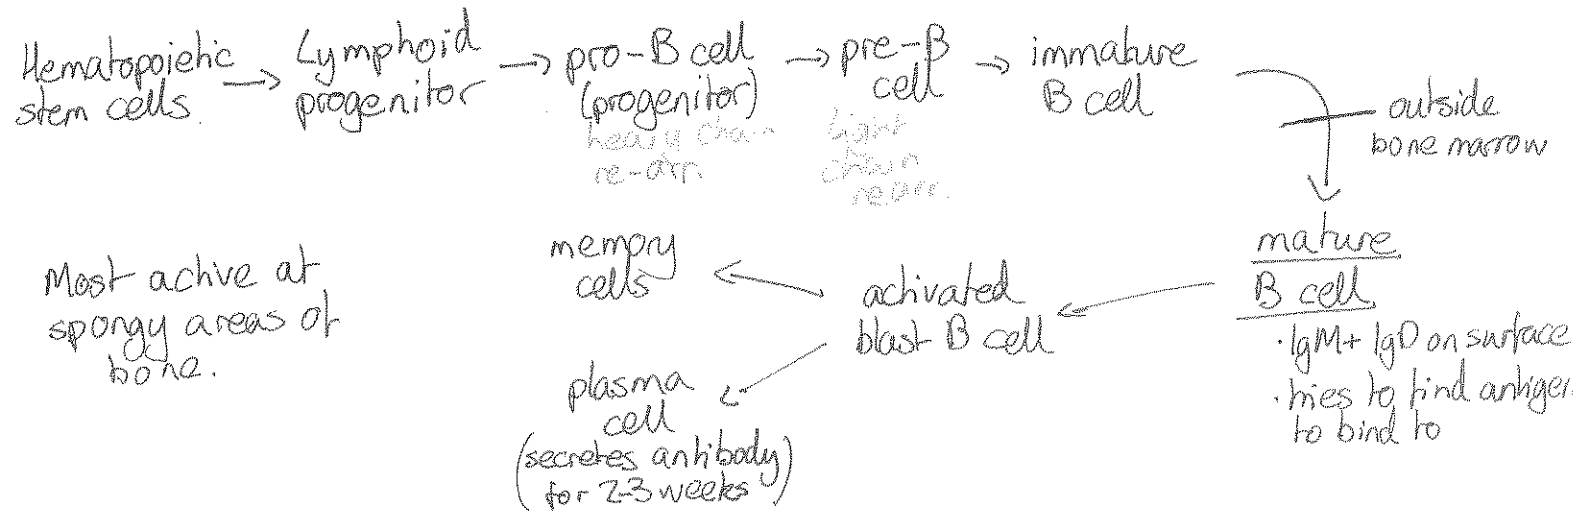 Hematopoietic
stem cells.
→ Lymphoid
progenitor
→ pro-B cell
(progenitor)
heavy chain
re-arr.
→ pre-B
cell
light
chain
re.arr.
→ immature
B cell
outside
bone marrow
mature
B cell
· IgM+ IgD on surface
· tries to find antigen
to bind to
activated
blast B cell
memory
cells
plasma
cell
(secretes antibody
for 2-3 weeks)
Most active at
spongy areas of
bone.